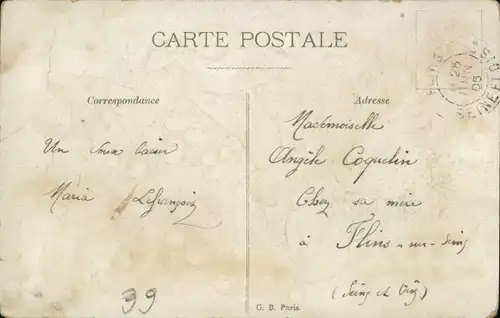 CARTE POSTALE
Correspondance
Un doux baiser
Maria Lefrançois
Adresse
Mademoiselle
Angèle Coquelin
Chez sa mère
à Flins-sur-Seine
(Seine et Oise)
25
05
39
G. B. Paris.